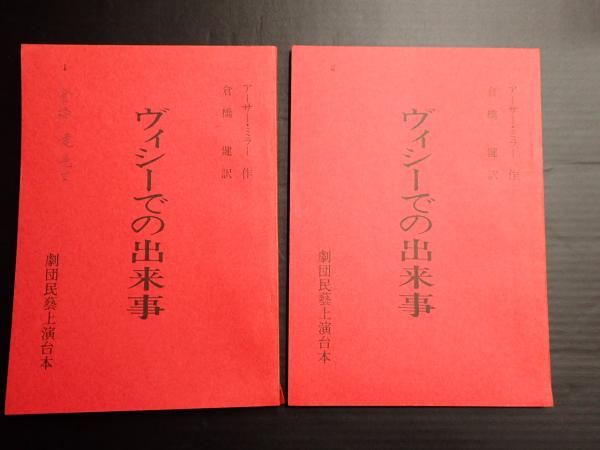 1
アーサー・ミラー 作
倉橋 健 訳
ヴィシーでの出来事
劇団民藝上演台本
2
アーサー・ミラー 作
倉橋 健 訳
ヴィシーでの出来事
劇団民藝上演台本